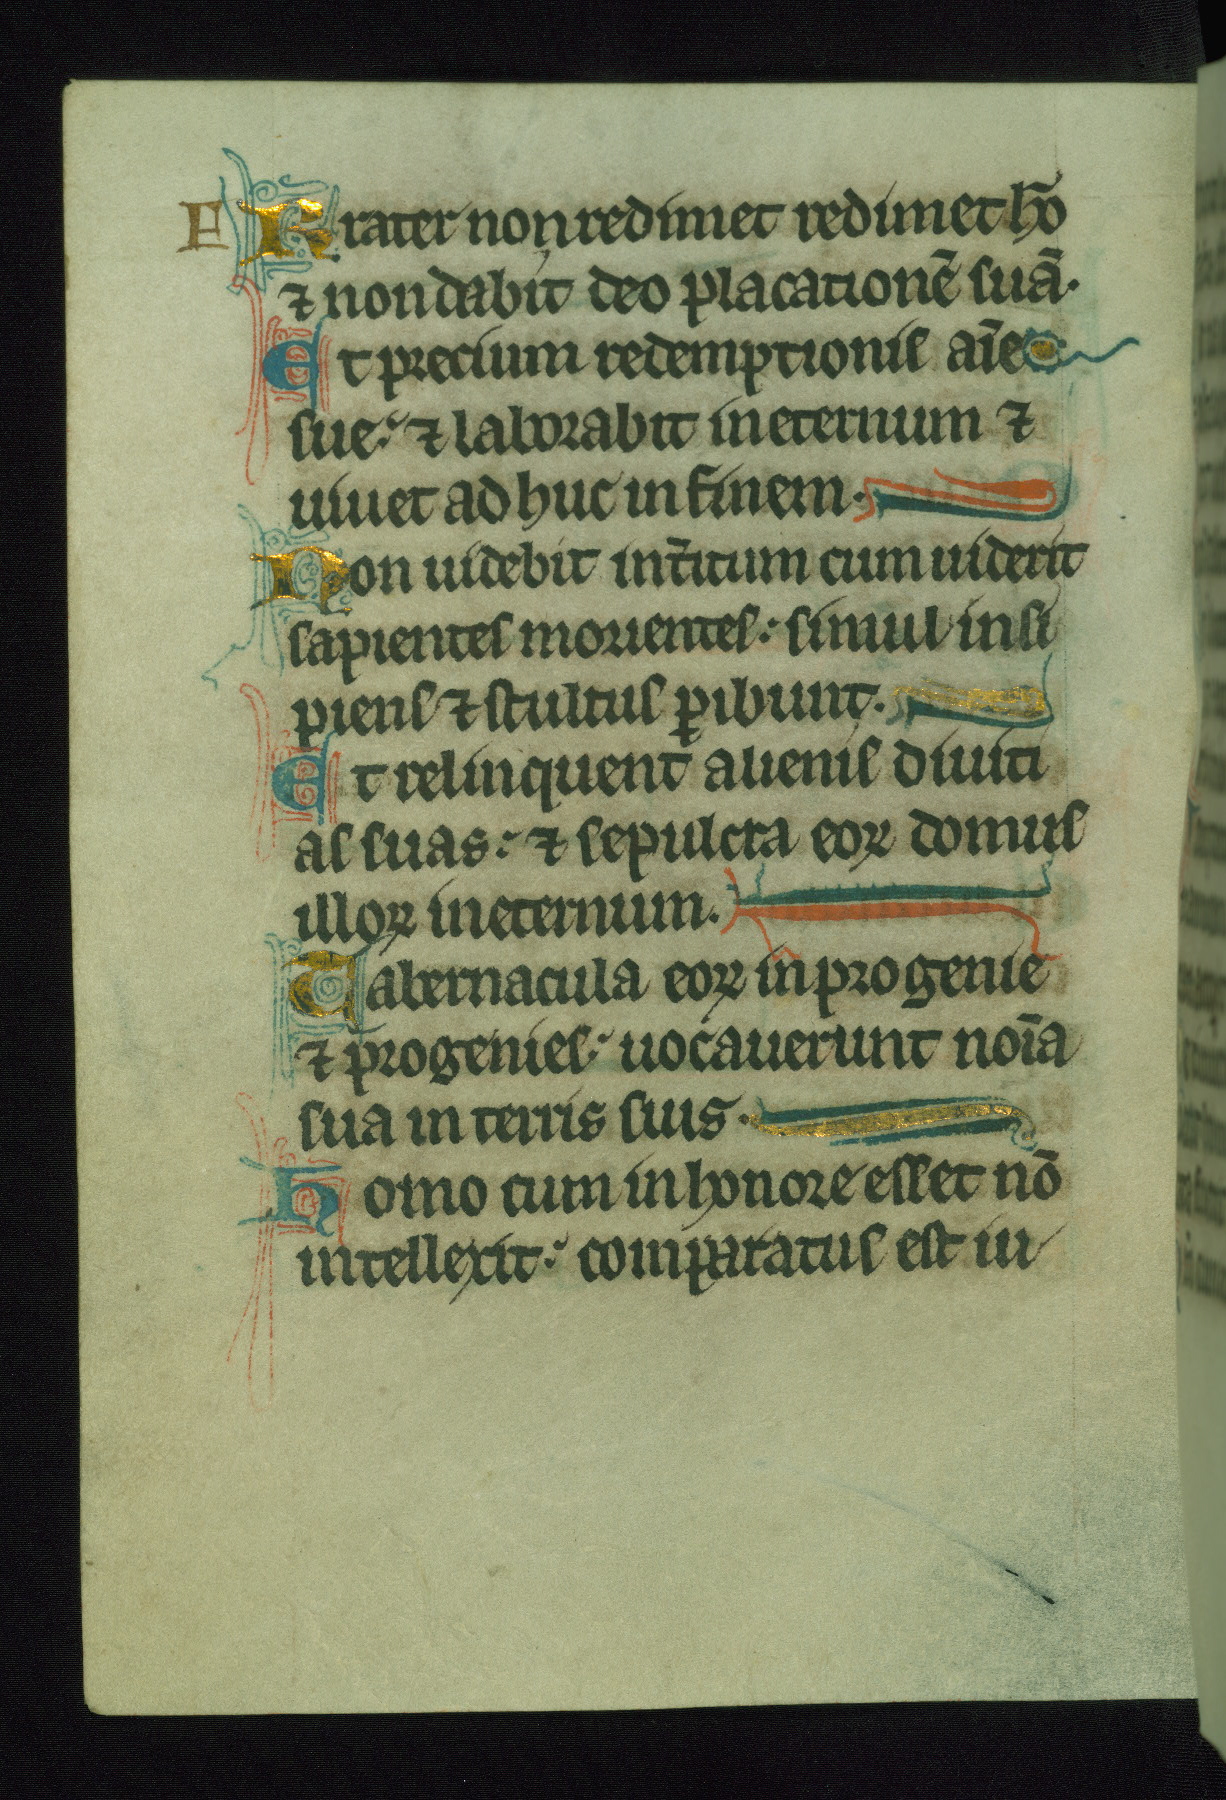 F Rrater non redimet redimet ho̅
⁊ non dabit deo placatione̅ sua̅.
Et precium redemptionis ai̅e
sue: ⁊ laborabit in eternum ⁊
uiuet ad huc in finem.
Non uidebit int̅itum cum uiderit
sapientes morientes: simul insi
piens ⁊ stultus ꝑibunt.
Et relinquent alienis diuiti
as suas: ⁊ sepulcra eoꝝ domus
illoꝝ in eternum.
Tabernacula eoꝝ in progenie
⁊ progenies: uocauerunt noi̅a
sua in terris suis.
Homo cum in honore esset no̅
intellexit: comparatus est iu